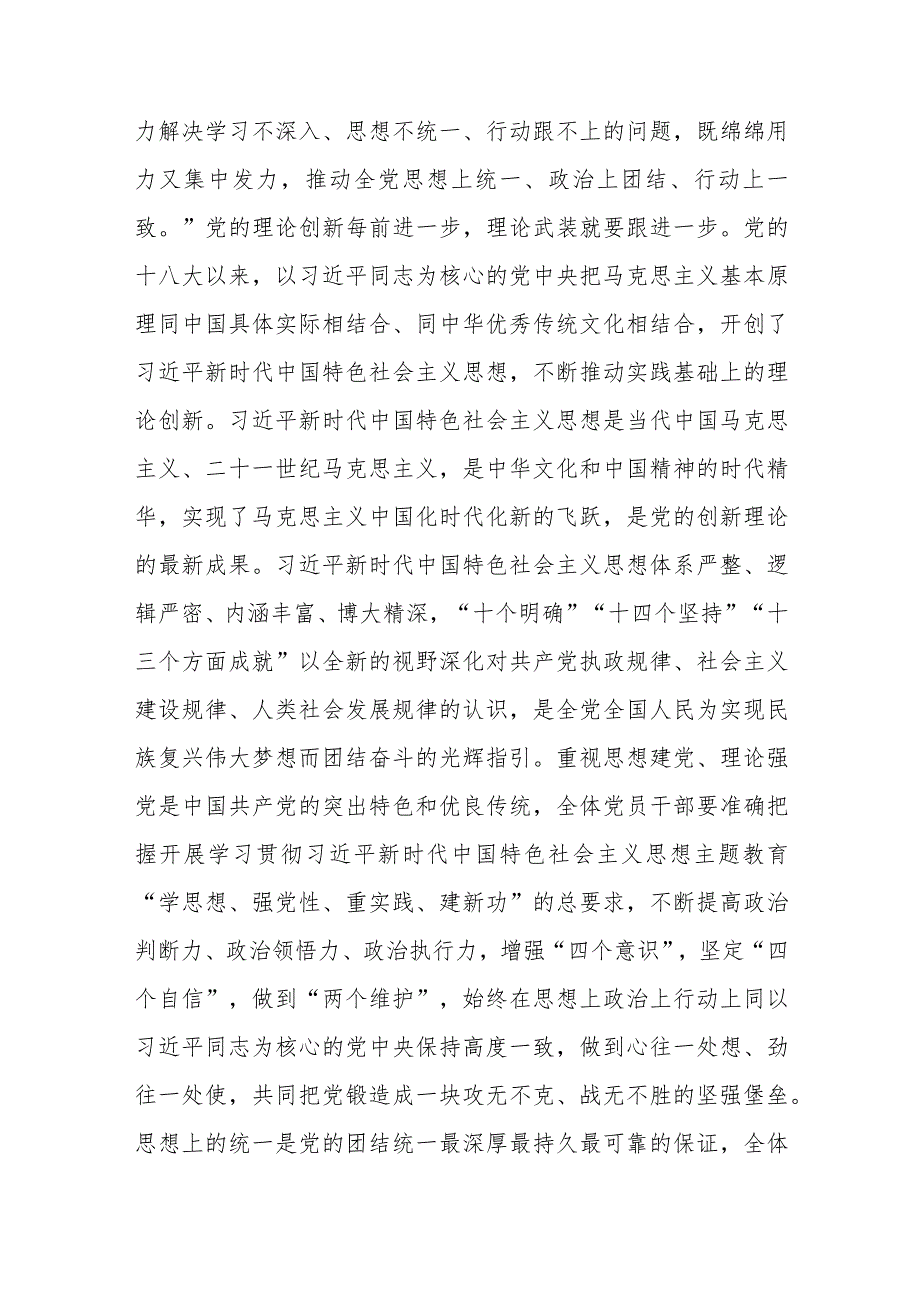 力解决学习不深入、思想不统一、行动跟不上的问题，既绵绵用
力又集中发力，推动全党思想上统一、政治上团结、行动上一
致。”党的理论创新每前进一步，理论武装就要跟进一步。党的
十八大以来，以习近平同志为核心的党中央把马克思主义基本原
理同中国具体实际相结合、同中华优秀传统文化相结合，开创了
习近平新时代中国特色社会主义思想，不断推动实践基础上的理
论创新。习近平新时代中国特色社会主义思想是当代中国马克思
主义、二十一世纪马克思主义，是中华文化和中国精神的时代精
华，实现了马克思主义中国化时代化新的飞跃，是党的创新理论
的最新成果。习近平新时代中国特色社会主义思想体系严整、逻
辑严密、内涵丰富、博大精深，“十个明确”“十四个坚持”“十
三个方面成就”以全新的视野深化对共产党执政规律、社会主义
建设规律、人类社会发展规律的认识，是全党全国人民为实现民
族复兴伟大梦想而团结奋斗的光辉指引。重视思想建党、理论强
党是中国共产党的突出特色和优良传统，全体党员干部要准确把
握开展学习贯彻习近平新时代中国特色社会主义思想主题教育
“学思想、强党性、重实践、建新功”的总要求，不断提高政治
判断力、政治领悟力、政治执行力，增强“四个意识”，坚定“四
个自信”，做到“两个维护”，始终在思想上政治上行动上同以
习近平同志为核心的党中央保持高度一致，做到心往一处想、劲
往一处使，共同把党锻造成一块攻无不克、战无不胜的坚强堡垒。
思想上的统一是党的团结统一最深厚最持久最可靠的保证，全体